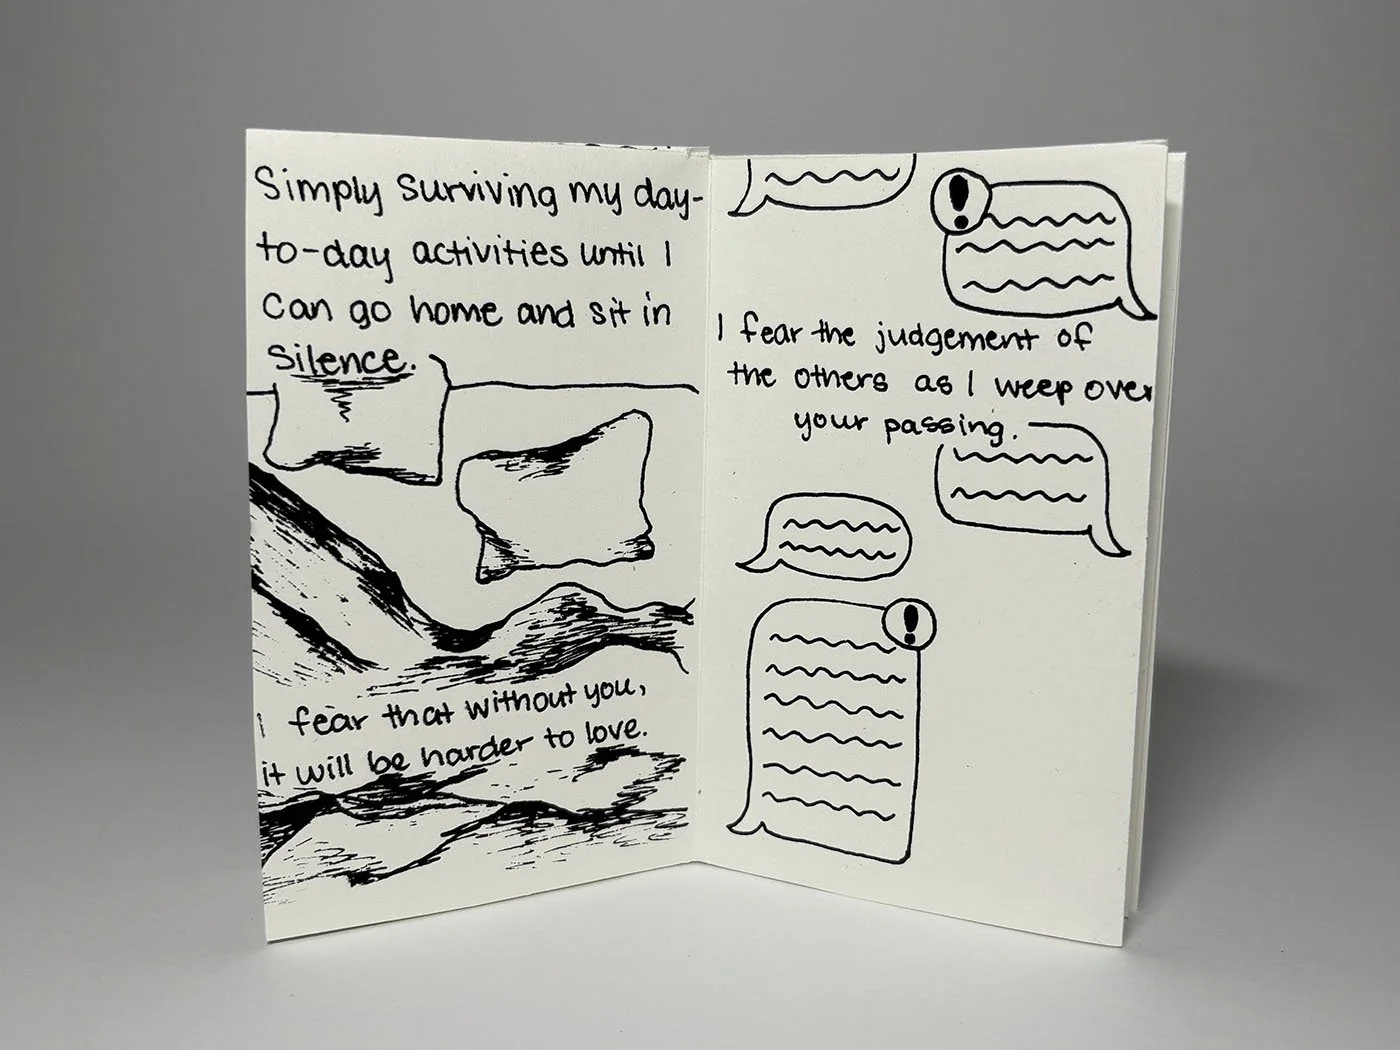 Simply surviving my day-
to-day activities until I
can go home and sit in
silence.
I fear that without you,
it will be harder to love.
I fear the judgement of
the others as I weep over
your passing.